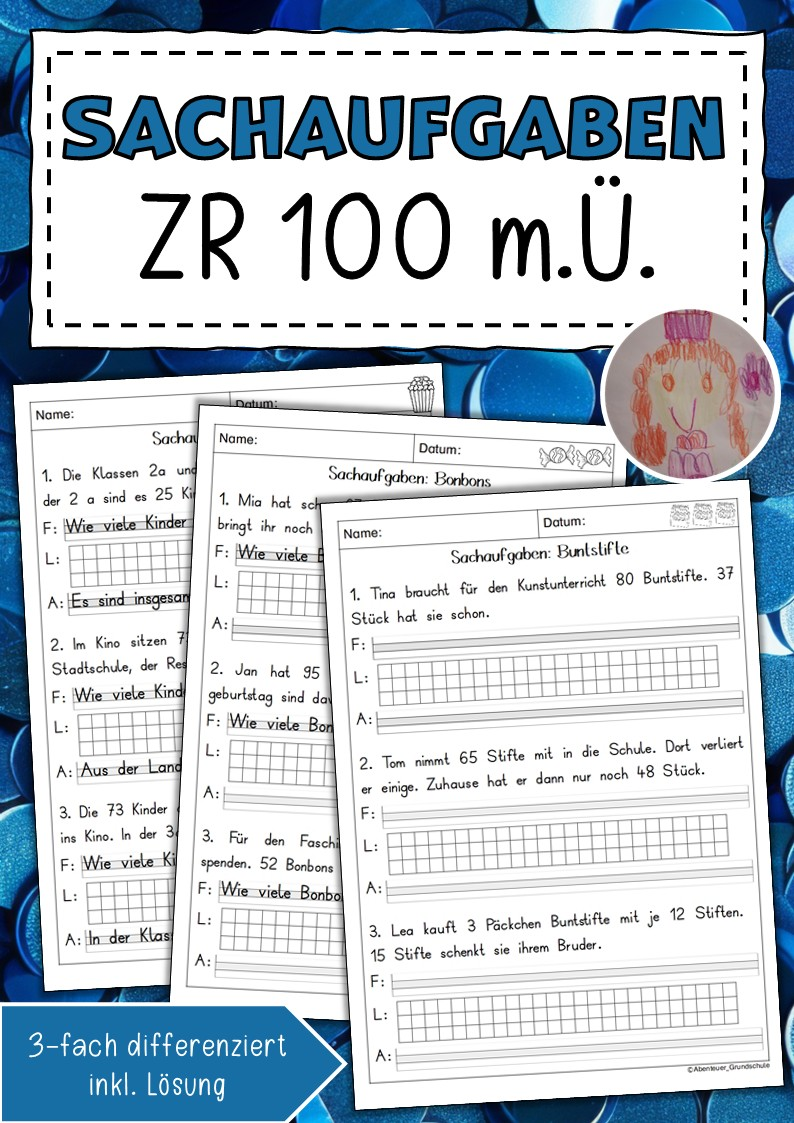 SACHAUFGABEN
ZR 100 m.Ü.
Name:
Datum:
1. Die Klassen 2a und
der 2 a sind es 25
F: Wie viele Kinder
L:
A: Es sind
2. Im Kino sitzen
Stadtschule, der
F: Wie viele
L:
A: Aus der
3. Die 73 Kinder
ins Kino. In der
F: Wie viele
L:
A: In der
Name:
Datum:
Sachaufgaben: Bonbons
1. Mia hat
bringt ihr noch
F: Wie viele
L:
A:
2. Jan hat 95
geburtstag sind
F: Wie viele
L:
A:
3. Für den
spenden. 52 Bonbons
F: Wie viele
L:
A:
Name:
Datum:
Sachaufgaben: Buntstifte
1. Tina braucht für den Kunstunterricht 80 Buntstifte. 37
Stück hat sie schon.
F:
L:
A:
2. Tom nimmt 65 Stifte mit in die Schule. Dort verliert
er einige. Zuhause hat er dann nur noch 48 Stück.
F:
L:
A:
3. Lea kauft 3 Päckchen Buntstifte mit je 12 Stiften.
15 Stifte schenkt sie ihrem Bruder.
F:
L:
A:
©Abenteuer_Grundschule
3-fach differenziert
inkl. Lösung